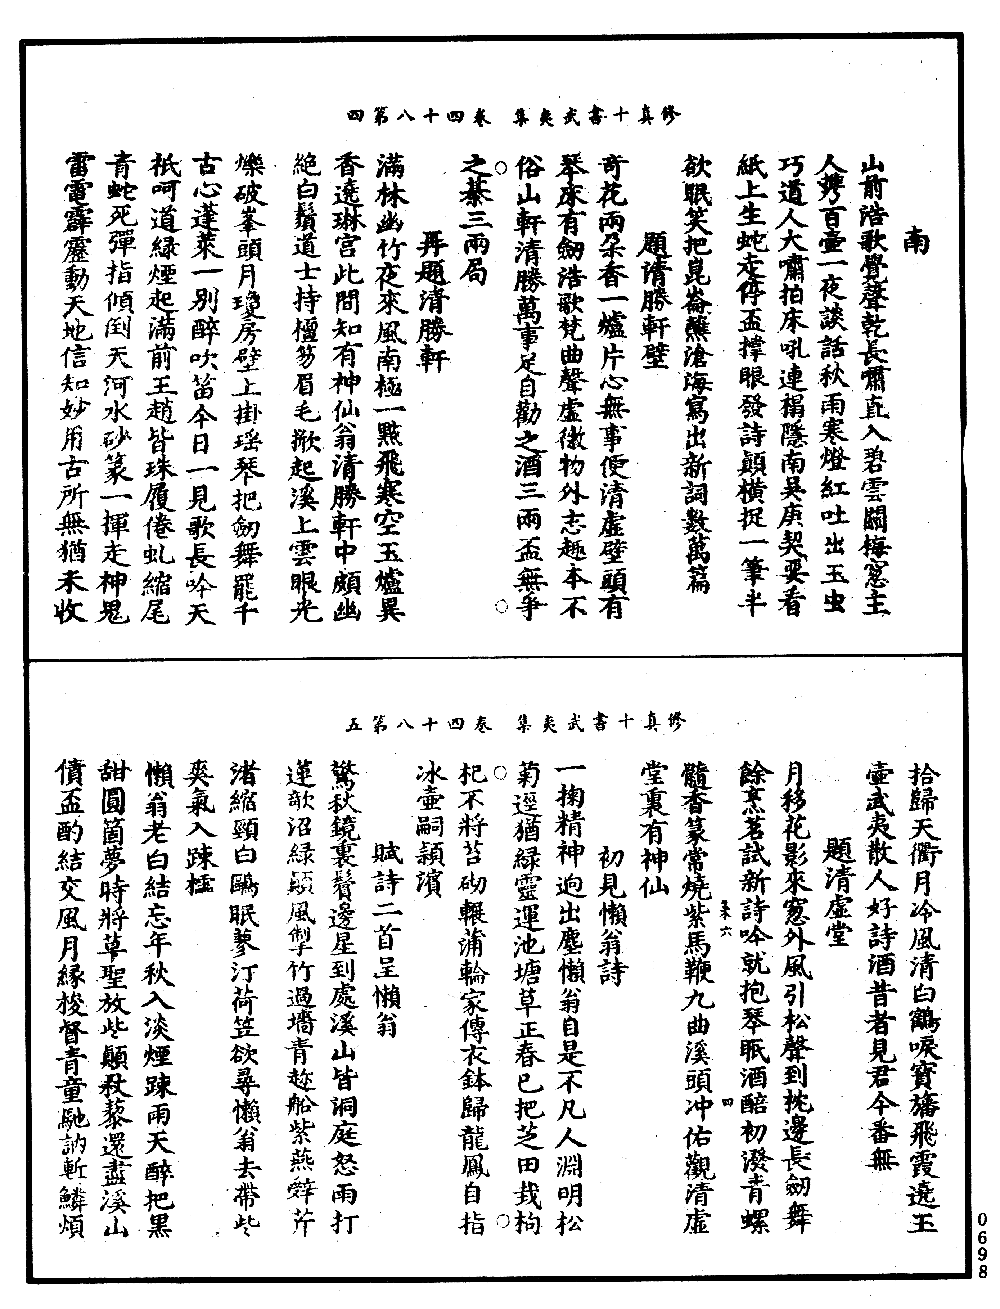 修真十書武夷集　卷四十八第四
南
山前浩歌聲聲乾長嘯直入碧雲關梅窓主
人携百壷一夜談話秋雨寒燈紅吐出玉虫
巧道人大嘯拍床吼連楊隱南吳庚契要看
紙上生蛇走停盃撑眼發詩顛橫捉一筆半
欲眠笑把崑崙蘸滄海寫出新詞數萬篇
題清勝軒壁
奇花兩朶香一爐片心無事便清虛壁頭有
琴床有劒浩歌梵曲聲虛徹物外志趣本不
俗山軒清勝萬事足自勸之酒三兩盃無爭
之棊三兩局
再題清勝軒
滿林幽竹夜來風南極一點飛寒空玉爐異
香遶琳宮此間知有神仙翁清勝軒中頗幽
絶白鬚道士持檀笏眉毛掀起溪上雲眼光
爍破峯頭月瓊房壁上掛瑶琴把劒舞罷千
古心蓬萊一別醉吹笛今日一見歌長吟天
祇呵道綠煙起滿前王趙皆珠履倦虬縮尾
青蛇死彈指傾倒天河水砂篆一揮走神鬼
雷電霹靂動天地信知妙用古所無猶未收
修真十書武夷集　卷四十八第五
拾歸天衢月冷風清白鶴唳寳旛飛霞遶玉
壷武夷散人好詩酒昔者見君今番無
題清虛堂
月移花影來窓外風引松聲到枕邊長劒舞
餘烹茗試新詩吟就抱琴眠酒醅初潑青螺
髓香篆常燒紫馬鞭九曲溪頭冲佑觀清虛
堂裏有神仙
初見懶翁詩
一掬精神迥出塵懶翁自是不凡人淵明松
菊逕猶綠靈運池塘草正春已把芝田栽枸
杞不將苔砌輾蒲輪家傳衣鉢歸龍鳳自指
冰壷嗣潁濱
賦詩二首呈懶翁
驚秋鏡裏鬢邊星到處溪山皆洞庭怒雨打
蓮欹沼綠顛風掣竹過墻青趂船紫燕辤芹
渚縮頸白鷗眠蓼汀荷笠欲尋懶翁去帶些
爽氣入踈櫺
懶翁老白結忘年秋入淡煙踈雨天醉把黑
甜圓箇夢時將草聖放些顛秋藜還盡溪山
債盃酌結交風月縁梭督青童馳訥斬鱗煩
四
0698